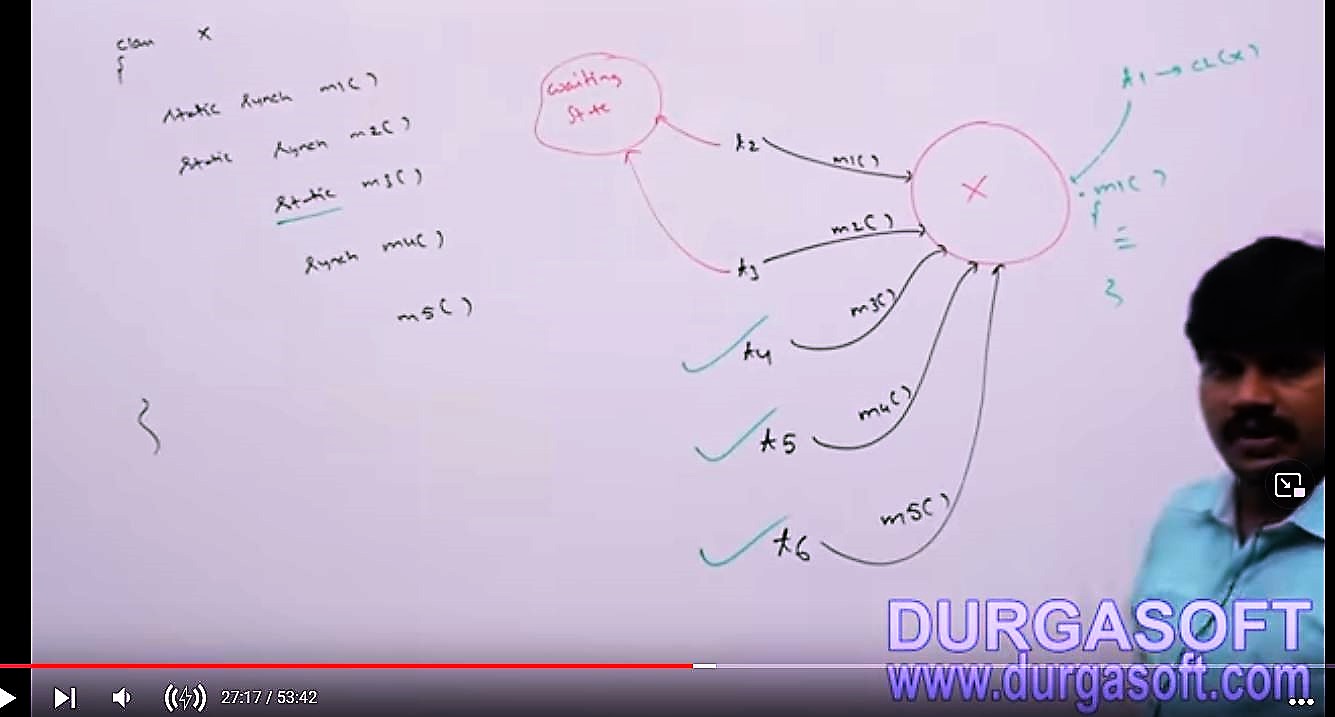 class X
{
static synch m1( )
static synch m2( )
static m3( )
synch m4( )
m5( )
}
waiting
state
t2
m1( )
t3
m2( )
t4
m3( )
t5
m4( )
t6
m5( )
X
t1 → CL(X)
m1( )
{
}
DURGASOFT
www.durgasoft.com
27:17 / 53:42